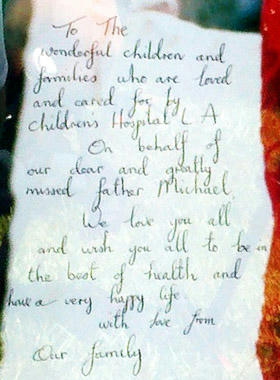 To The
wonderful children and
families who are loved
and cared for by
Children's Hospital L A
On behalf of
our dear and greatly
missed father Michael,
We love you all
and wish you all to be in
the best of health and
have a very happy life
with love from
Our family